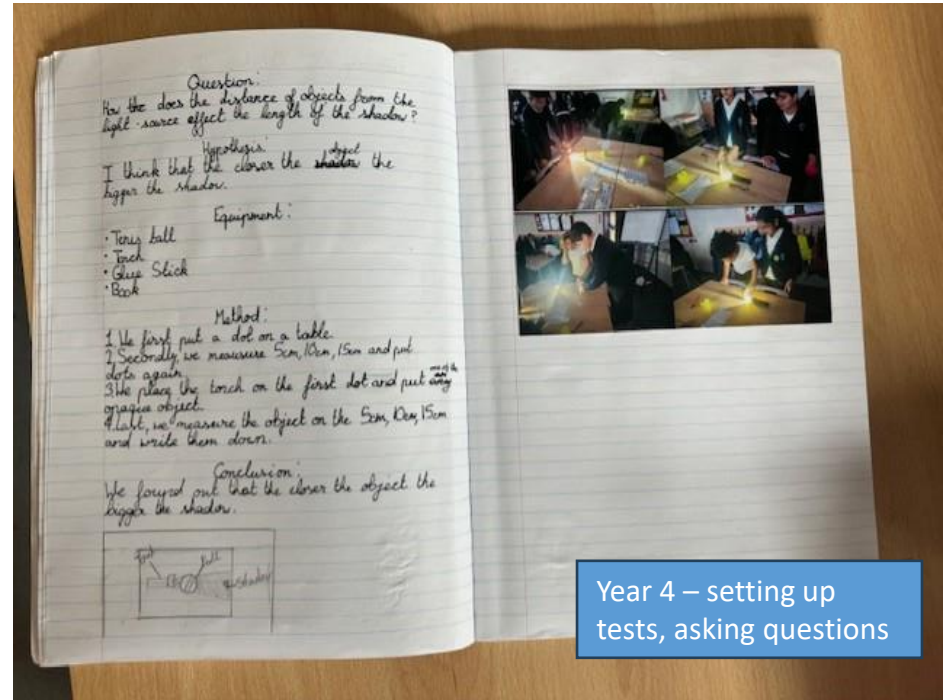 Question:
How the does the distance of objects from the
light-source effect the length of the shadow?
Hypothesis:
object
I think that the closer the shadow the
bigger the shadow.
Equipment:
• Tenis ball
• Torch
• Glue Stick
• Book
Method:
1. We first put a dot on a table.
2. Secondly, we meausure 5cm, 10cm, 15cm and put
dots again.
3. We place the torch on the first dot and put
opaque object.
4. Last, we measure the object on the 5cm, 10cm, 15cm
and write them down.
Conclusion:
We found out that the closer the object the
bigger the shadow.
ball
shadow
Year 4 – setting up
tests, asking questions